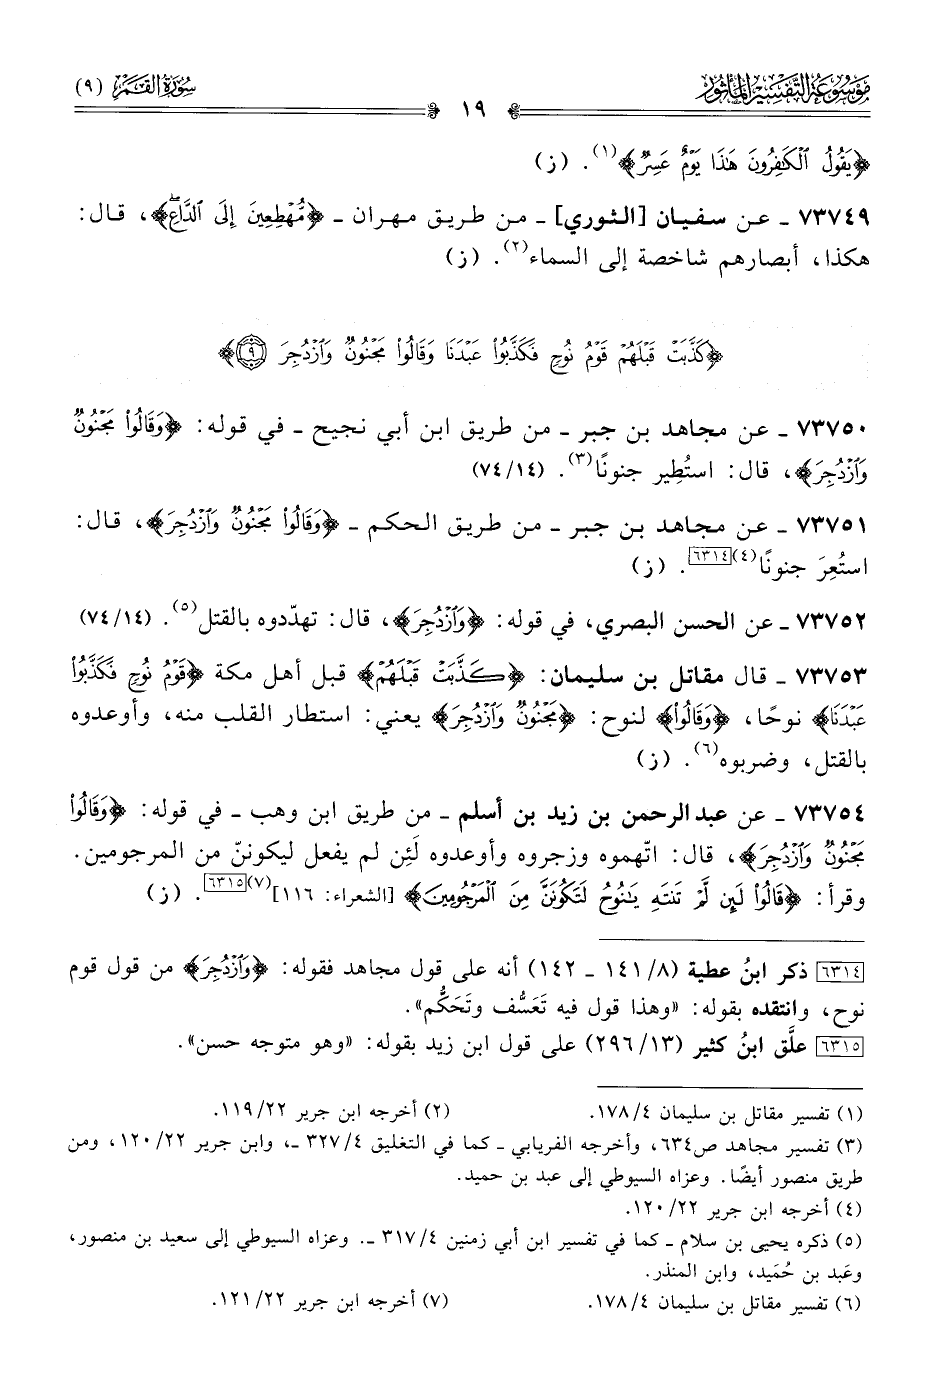 مَوْسُوعَة التَّفْسِير المَأثُور
١٩
سُورَةُ القَمَر (٩)
﴿يَقُولُ ٱلْكَٰفِرُونَ هَٰذَا يَوْمٌ عَسِرٌ﴾(١). (ز)
٧٣٧٤٩ ـ عن سفيان [الثوري] ـ من طريق مهران ـ ﴿مُّهْطِعِينَ إِلَى ٱلدَّاعِۖ﴾، قال:
هكذا، أبصارهم شاخصة إلى السماء(٢). (ز)
﴿كَذَّبَتْ قَبْلَهُمْ قَوْمُ نُوحٍ فَكَذَّبُوا۟ عَبْدَنَا وَقَالُوا۟ مَجْنُونٌ وَٱزْدُجِرَ ٩﴾
٧٣٧٥٠ ـ عن مجاهد بن جبر ـ من طريق ابن أبي نجيح ـ في قوله: ﴿وَقَالُوا۟ مَجْنُونٌ
وَٱزْدُجِرَ﴾، قال: استُطِير جنونًا(٣). (٧٤/١٤)
٧٣٧٥١ ـ عن مجاهد بن جبر ـ من طريق الحكم ـ ﴿وَقَالُوا۟ مَجْنُونٌ وَٱزْدُجِرَ﴾، قال:
استُعِرَ جنونًا(٤)[٦٣١٤]. (ز)
٧٣٧٥٢ ـ عن الحسن البصري، في قوله: ﴿وَٱزْدُجِرَ﴾، قال: تهدّدوه بالقتل(٥). (٧٤/١٤)
٧٣٧٥٣ ـ قال مقاتل بن سليمان: ﴿كَذَّبَتْ قَبْلَهُمْ﴾ قبل أهل مكة ﴿قَوْمُ نُوحٍ فَكَذَّبُوا۟
عَبْدَنَا﴾ نوحًا، ﴿وَقَالُوا۟﴾ لنوح: ﴿مَجْنُونٌ وَٱزْدُجِرَ﴾ يعني: استطار القلب منه، وأوعدوه
بالقتل، وضربوه(٦). (ز)
٧٣٧٥٤ ـ عن عبد الرحمن بن زيد بن أسلم ـ من طريق ابن وهب ـ في قوله: ﴿وَقَالُوا۟
مَجْنُونٌ وَٱزْدُجِرَ﴾، قال: اتّهموه وزجروه وأوعدوه لَئِن لم يفعل ليكوننّ من المرجومين.
وقرأ: ﴿قَالُوا۟ لَئِن لَّمْ تَنتَهِ يَٰنُوحُ لَتَكُونَنَّ مِنَ ٱلْمَرْجُومِينَ﴾ [الشعراء: ١١٦](٧)[٦٣١٥]. (ز)
[٦٣١٤] ذكر ابنُ عطية (٨/ ١٤١ ـ ١٤٢) أنه على قول مجاهد فقوله: ﴿وَٱزْدُجِرَ﴾ من قول قوم
نوح، وانتقده بقوله: «وهذا قول فيه تَعَسُّف وتَحَكُّم».
[٦٣١٥] علَّق ابنُ كثير (١٣/ ٢٩٦) على قول ابن زيد بقوله: «وهو متوجه حسن».
(١) تفسير مقاتل بن سليمان ٤/ ١٧٨.
(٢) أخرجه ابن جرير ٢٢/ ١١٩.
(٣) تفسير مجاهد ص٦٣٤، وأخرجه الفريابي ـ كما في التغليق ٤/ ٣٢٧ ـ، وابن جرير ٢٢/ ١٢٠، ومن
طريق منصور أيضًا. وعزاه السيوطي إلى عبد بن حميد.
(٤) أخرجه ابن جرير ٢٢/ ١٢٠.
(٥) ذكره يحيى بن سلام ـ كما في تفسير ابن أبي زمنين ٤/ ٣١٧ ـ. وعزاه السيوطي إلى سعيد بن منصور،
وعَبد بن حُمَيد، وابن المنذر.
(٦) تفسير مقاتل بن سليمان ٤/ ١٧٨.
(٧) أخرجه ابن جرير ٢٢/ ١٢١.